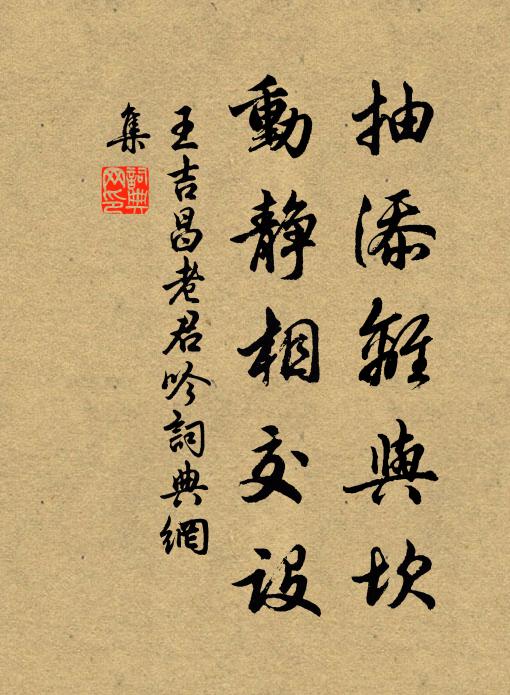 抽添離與坎
動静相交設
王吉昌老君吟詞典網
集
詞典网印